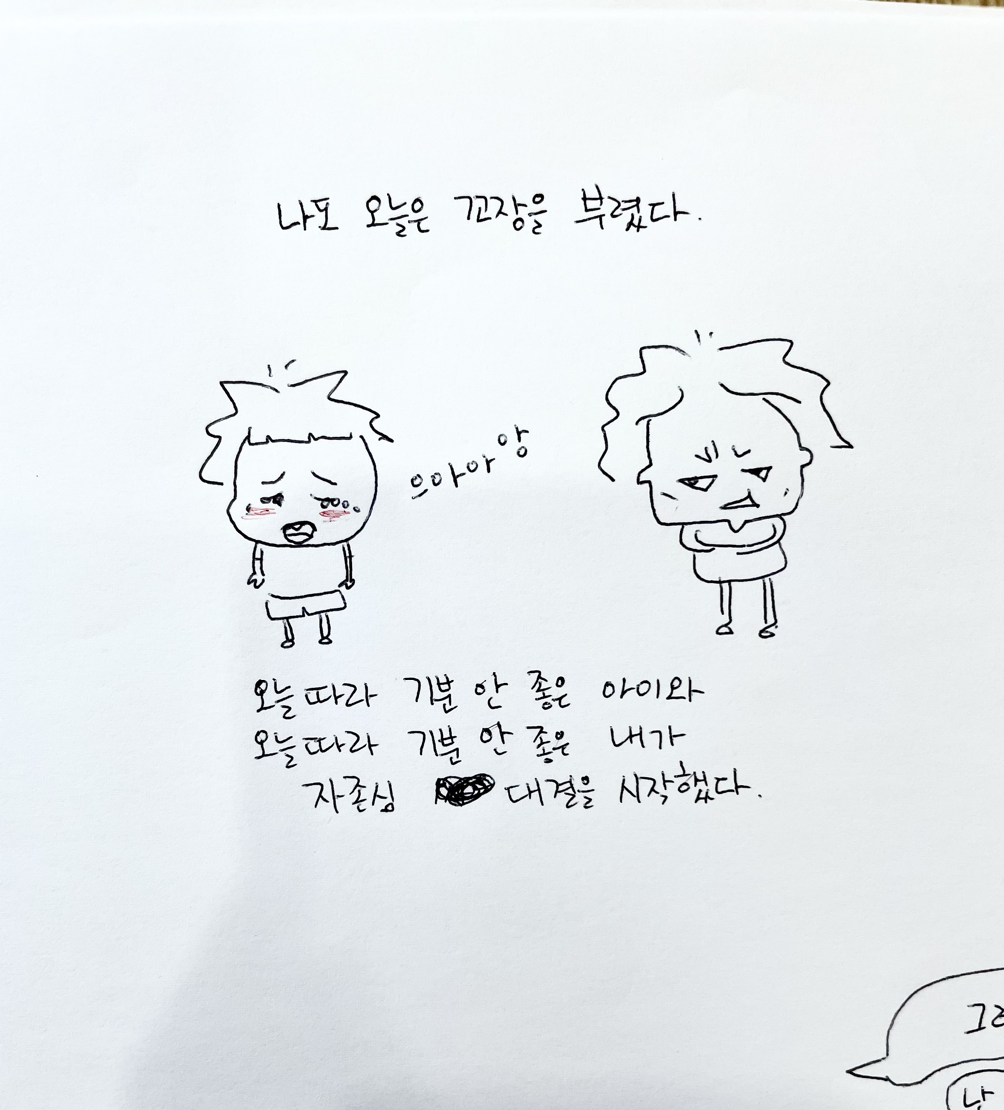 나도 오늘은 꼬장을 부렸다.
으아아앙
오늘따라 기분 안 좋은 아이와
오늘따라 기분 안 좋은 내가
자존심 대결을 시작했다.
난